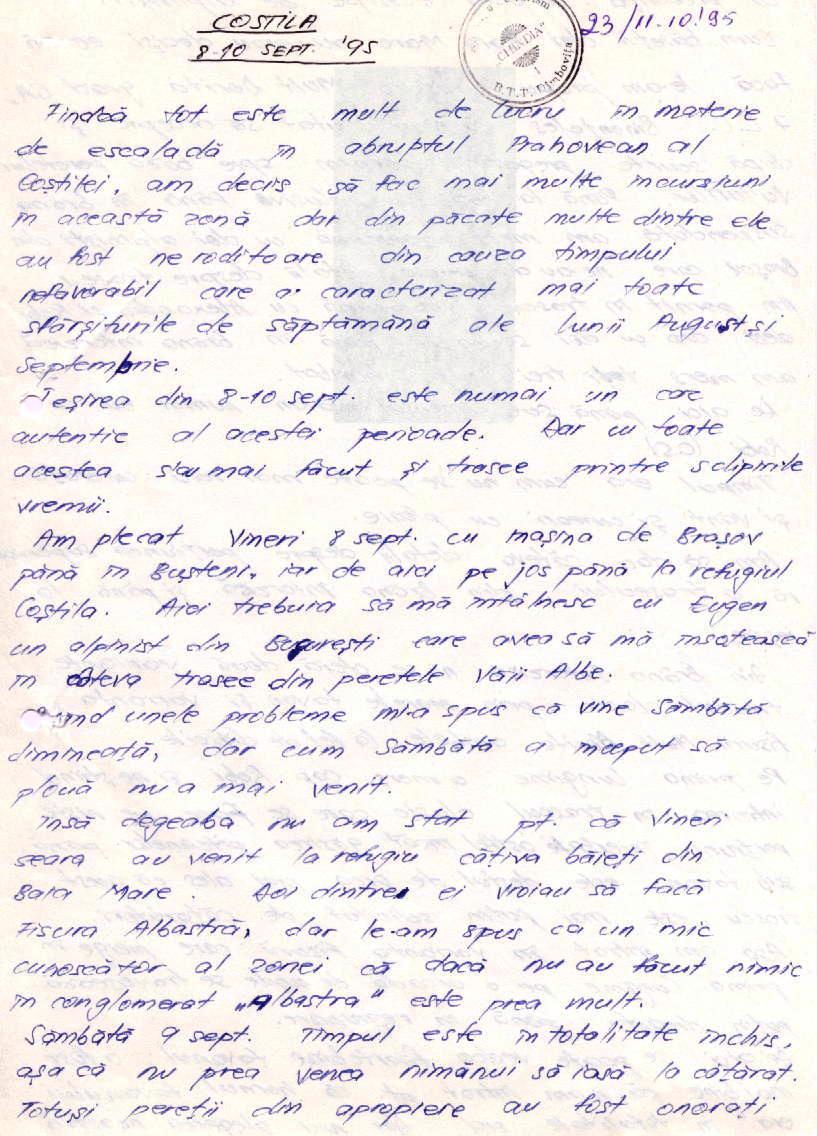 COSTILA
8-10 SEPT. '95
23/11-10.'95
"CHINDIA"
B.T.T. Dîmbovița
Findcă tot este mult de lucru în materie
de escaladă în abruptul Prahovean al
Coștilei, am decis să fac mai multe incursiuni
în această zonă dar din păcate multe dintre ele
au fost neroditoare din cauza timpului
nefavorabil care a caracterizat mai toate
sfârșiturile de săptămână ale lunii August și
Septembrie.
Ieșirea din 8-10 sept. este numai un
autentic al acestei perioade. Dar cu toate
acestea s-au mai făcut și trasee printre sclipirile
vremii.
Am plecat Vineri 8 sept. cu mașina de Brașov
până în Bușteni, iar de aici pe jos până la refugiul
Coștila. Aici trebuia să mă întâlnesc cu Eugen
un alpinist din București care avea să mă însoțească
în câteva trasee din peretele Văii Albe.
unele probleme mi-a spus că vine Sâmbătă
dimineață, dar cum Sâmbătă a început să
plouă nu a mai venit.
Însă degeaba nu am stat pt. că Vineri
seara au venit la refugiu câțiva băieți din
Baia Mare. Doi dintre ei vroiau să facă
Fisura Albastră, dar le-am spus ca un mic
cunoscător al zonei că dacă nu au făcut nimic
în conglomerat „Albastra" este prea mult.
Sâmbătă 9 sept. Timpul este în totalitate închis,
așa că nu prea venea nimănui să iasă la cățărat.
Totuși pereții din apropiere au fost onorați